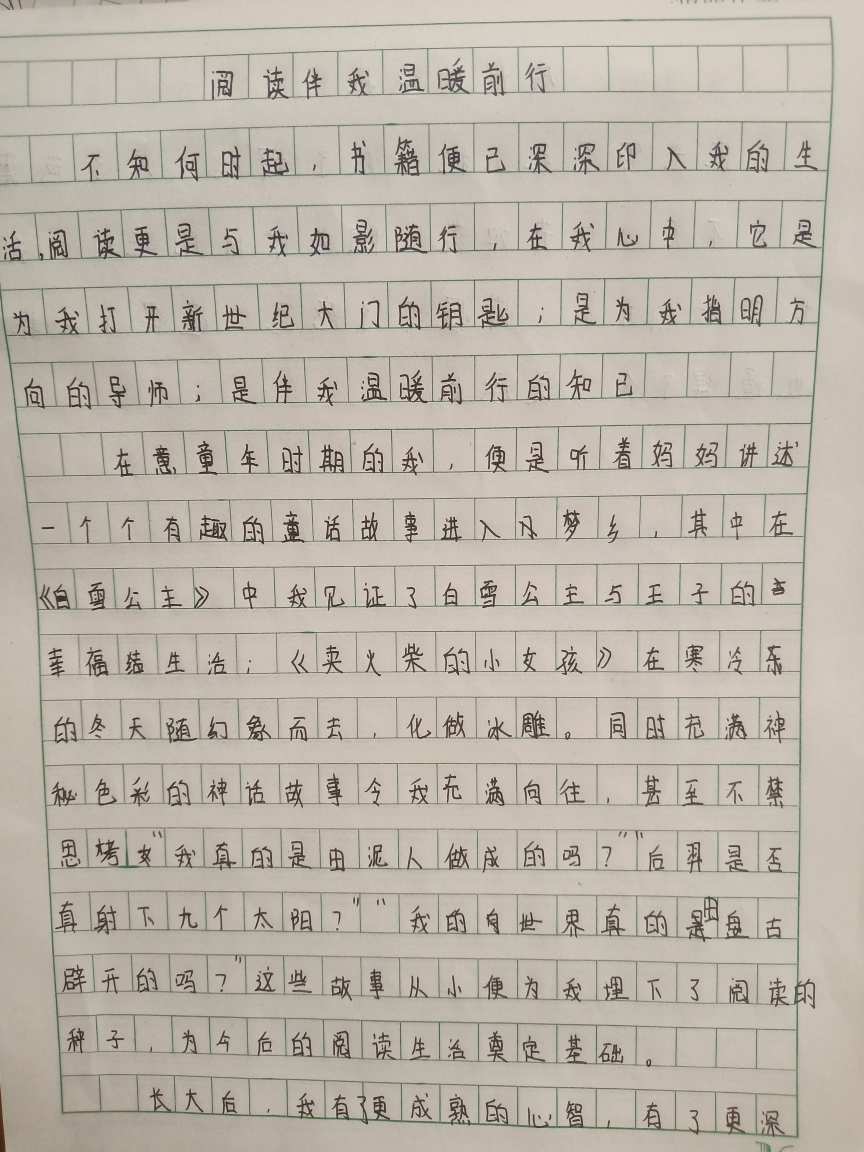 阅读伴我温暖前行
不知何时起，书籍便已深深印入我的生
活，阅读更是与我如影随行，在我心中，它是
为我打开新世纪大门的钥匙；是为我指明方
向的导师；是伴我温暖前行的知己
在意童年时期的我，便是听着妈妈讲述
一个个有趣的童话故事进入梦乡，其中在
《白雪公主》中我见证了白雪公主与王子的
幸福结生活；《卖火柴的小女孩》在寒冷冻
的冬天随幻象而去，化做冰雕。同时充满神
秘色彩的神话故事令我充满向往，甚至不禁
思考女"我真的是由泥人做成的吗？""后羿是否
真射下九个太阳？""我的世界真的是由盘古
辟开的吗？"这些故事从小便为我埋下了阅读的
种子，为今后的阅读生活奠定基础。
长大后，我有了更成熟的心智，有了更深